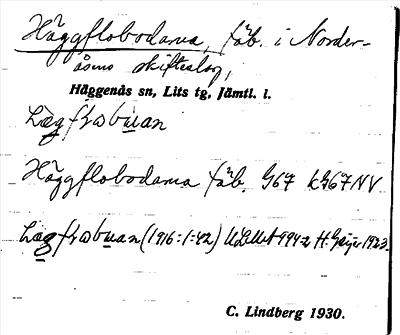 Häggflobodarna, fäb. i Norder-
åsens skifteslag,
Häggenås sn, Lits tg, Jämtl. l.
Häggflobodarna fäb. G67 kG67NV
(1916:1:42) ULMA 994:2 H. Geijer 1923.
C. Lindberg 1930.